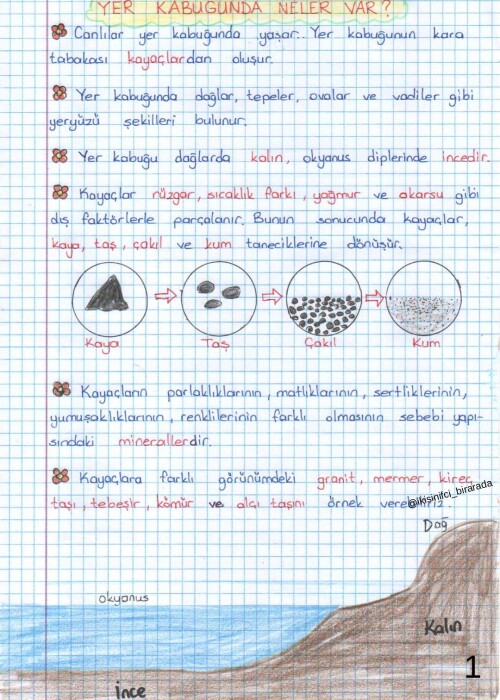 YER KABUĞUNDA NELER VAR?
Canlılar yer kabuğunda yaşar. Yer kabuğunun kara
tabakası kayaçlardan oluşur.
Yer kabuğunda dağlar, tepeler, ovalar ve vadiler gibi
yeryüzü şekilleri bulunur.
Yer kabuğu dağlarda kalın, okyanus diplerinde incedir.
Kayaçlar rüzgar, sıcaklık farkı, yağmur ve akarsu gibi
dış faktörlerle parçalanır. Bunun sonucunda kayaçlar,
kaya, taş, çakıl ve kum taneciklerine dönüşür.
Kaya Taş Çakıl Kum
Kayaçların parlaklıklarının, matlıklarının, sertliklerinin,
yumuşaklıklarının, renklilerinin farklı olmasının sebebi yapı-
sındaki minerallerdir.
Kayaçlara farklı görünümdeki granit, mermer, kireç
taşı, tebeşir, kömür ve alçı taşını örnek verebiliriz.
@ikisinifci_birarada
Dağ
okyanus
Kalın
1
İnce